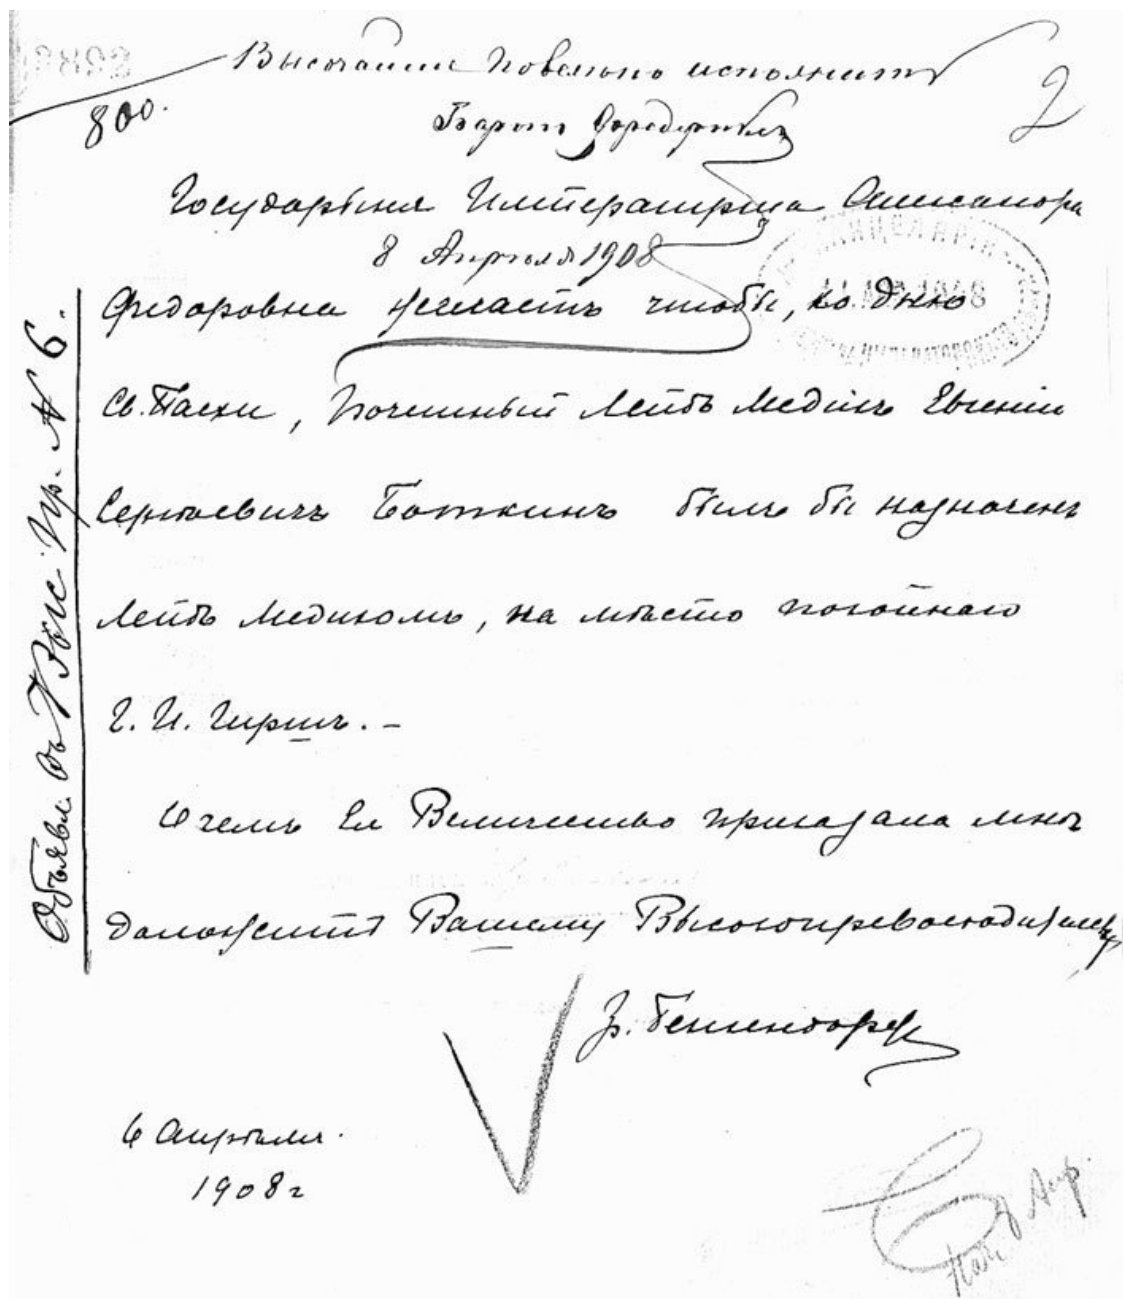 Высочайше повелено исполнить
2
800.
Баронъ Фредериксъ
Государыня Императрица Александра
8 Апреля 1908
Федоровна желаетъ чтобы, ко дню
Св. Пасхи, Почетный Лейбъ Медикъ Евгеній
Сергѣевичъ Боткинъ былъ бы назначенъ
Лейбъ Медикомъ, на мѣсто покойнаго
Г. И. Гиршъ. –
О чемъ Ея Величество приказала мнѣ
доложить Вашему Высокопревосходительству
Гр. Бенкендорф
6 Апрѣля.
1908 г
8 Апр
Объявл. въ Выс. Пр. № 6.